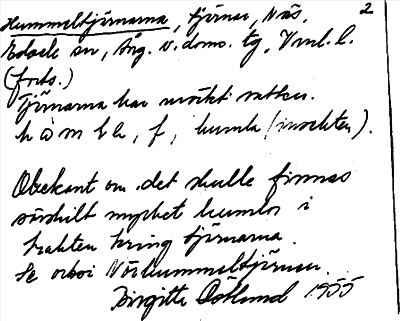 Hummeltjärnarna, tjärnar, Näs, 2
Edsele sn, Ång. v. doms. tg, Vnrl. l.
(forts.)
Tjärnarna har mörkt vatten.
f, humla (insekten).
Obekant om det skulle finnas
särskilt mycket humlor i
trakten kring tjärnarna.
Se också Nörhummeltjärnen.
Birgitta Östlund 1955